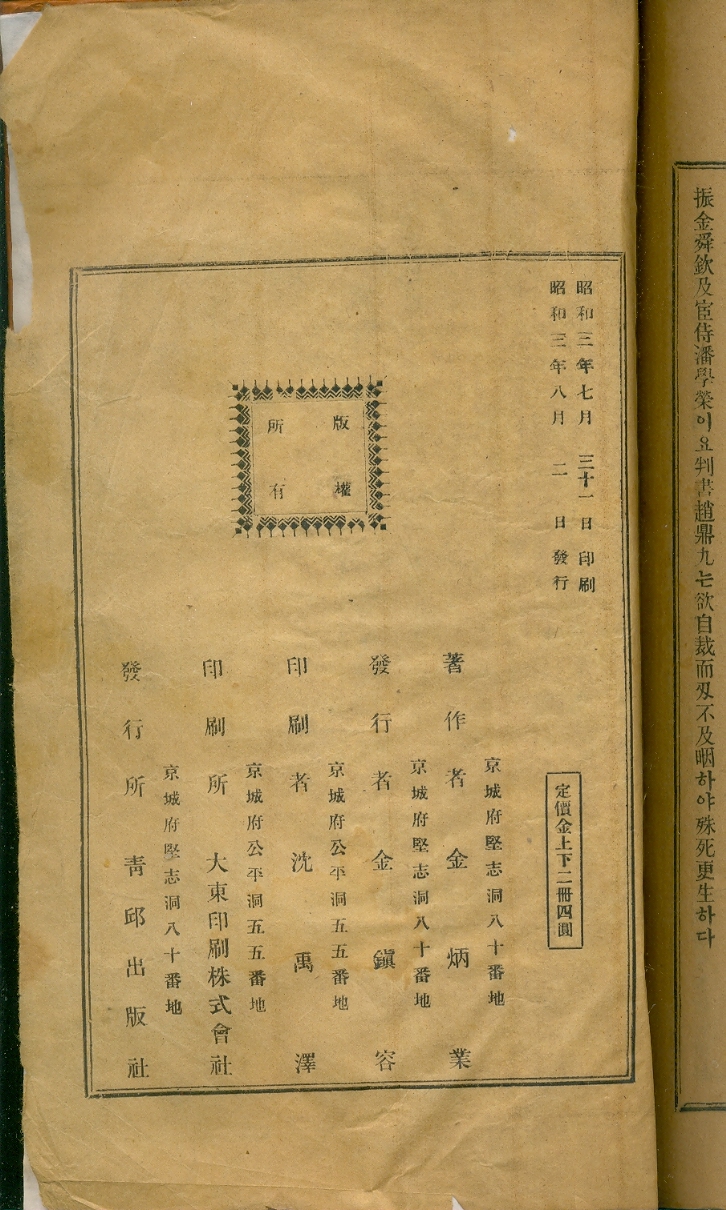 振金舜欽及宦侍潘學榮이요判書趙鼎九는欲自裁而刄不及咽하야殊死更生하다
昭和三年七月 三十一日 印刷
昭和三年八月 二日 發行
版權
所有
定價金上下二冊四圓
京城府堅志洞八十番地
著作者 金炳業
京城府堅志洞八十番地
發行者 金鎭容
京城府公平洞五五番地
印刷者 沈禹澤
京城府公平洞五五番地
印刷所 大東印刷株式會社
京城府堅志洞八十番地
發行所 靑邱出版社